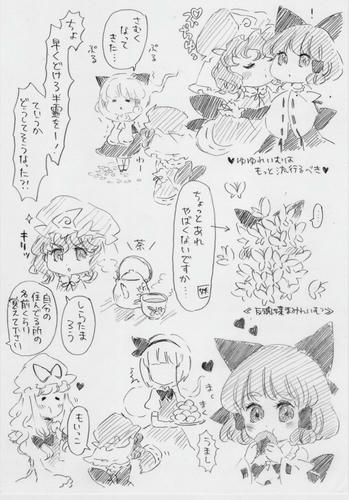 ゆゆれいむは
もっと流行るべき
さむく
なって
きた…
ぷる
ぷる
ちょ
早くどける半霊をー!
ていうか
どうしてそうなった?!
わー
ちょっとあれ
やばくないですか…
妖
…
反魂蝶まみれいむ
キリッ
茶
しらたま
ろう
自分の
住んでる所の
名前くらい
覚えて下さい
もいっこ
まく
まく
うまし